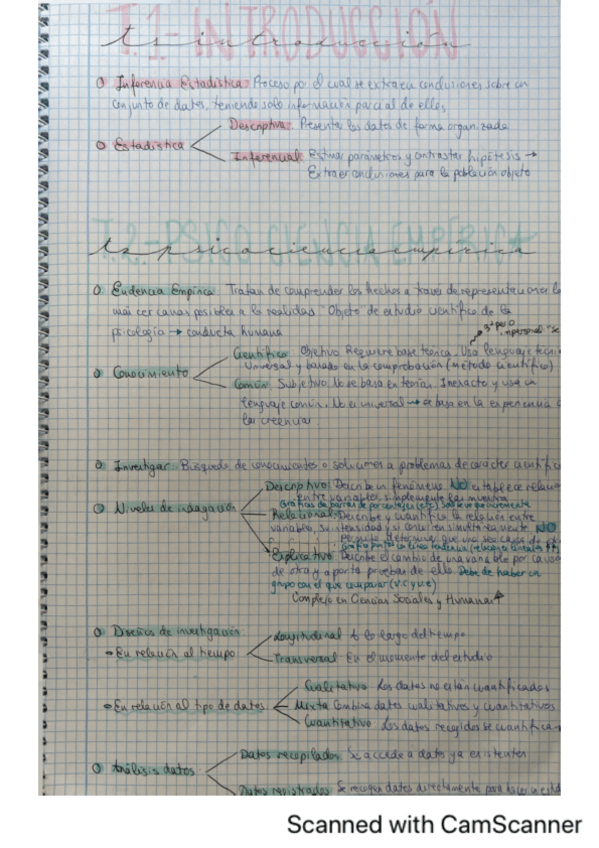 T.1- INTRODUCCIÓN
t.1 introducción
Inferencia Estadística: Proceso por el cual se extraen conclusiones sobre un
conjunto de datos, teniendo solo información parcial de ellos
Descriptiva: Presentar los datos de forma organizada
Estadística
Inferencial: Estimar parámetros y contrastar hipótesis →
Extraer conclusiones para la población objeto
T.2- PSICO CIENCIA EMPÍRICA
t.2 psico ciencia empirica
Evidencia Empírica: Tratan de comprender los hechos a través de
más cercanas posibles a la realidad "Objeto" de estudio científico de la
psicología → conducta humana
3ª pers o impersonal "se
Científico: Objetivo. Requiere base teórica. Usa lenguaje
universal y basado en la comprobación (método científico)
Conocimiento
Común: Subjetivo. No se basa en teorías. Inexacto y usa un
lenguaje común. No es universal → se basa en la experiencia
las creencias
Investigar: Búsqueda de conocimientos o soluciones a problemas de caracter
Descriptivo: Describe un fenómeno. NO establece
entre variables, simplemente las muestra
Niveles de indagación
Gráficos de barras de porcentajes (etc)
Relacional: Describe y cuantifica la relación entre
variables, su intensidad y si concurren simultáneamente. NO
Permite determinar que una sea causa de
Explicativo: Describe el cambio de una variable por causa
de otra y aporta pruebas de ello. Debe de haber un
grupo con el que comparar (v.c y v.e)
Complejo en Ciencias Sociales y Humanas
Diseños de investigación
Longitudinal A lo largo del tiempo
→ En relación al tiempo
Transversal En el momento del estudio
Cualitativo Los datos no están cuantificados
→ En relación al tipo de datos
Mixta Combina datos cualitativos y cuantitativos
Cuantitativo Los datos recogidos se
Datos recopilados Se accede a datos ya existentes
Análisis datos
Datos registrados Se recogen datos directamente para
Scanned with CamScanner